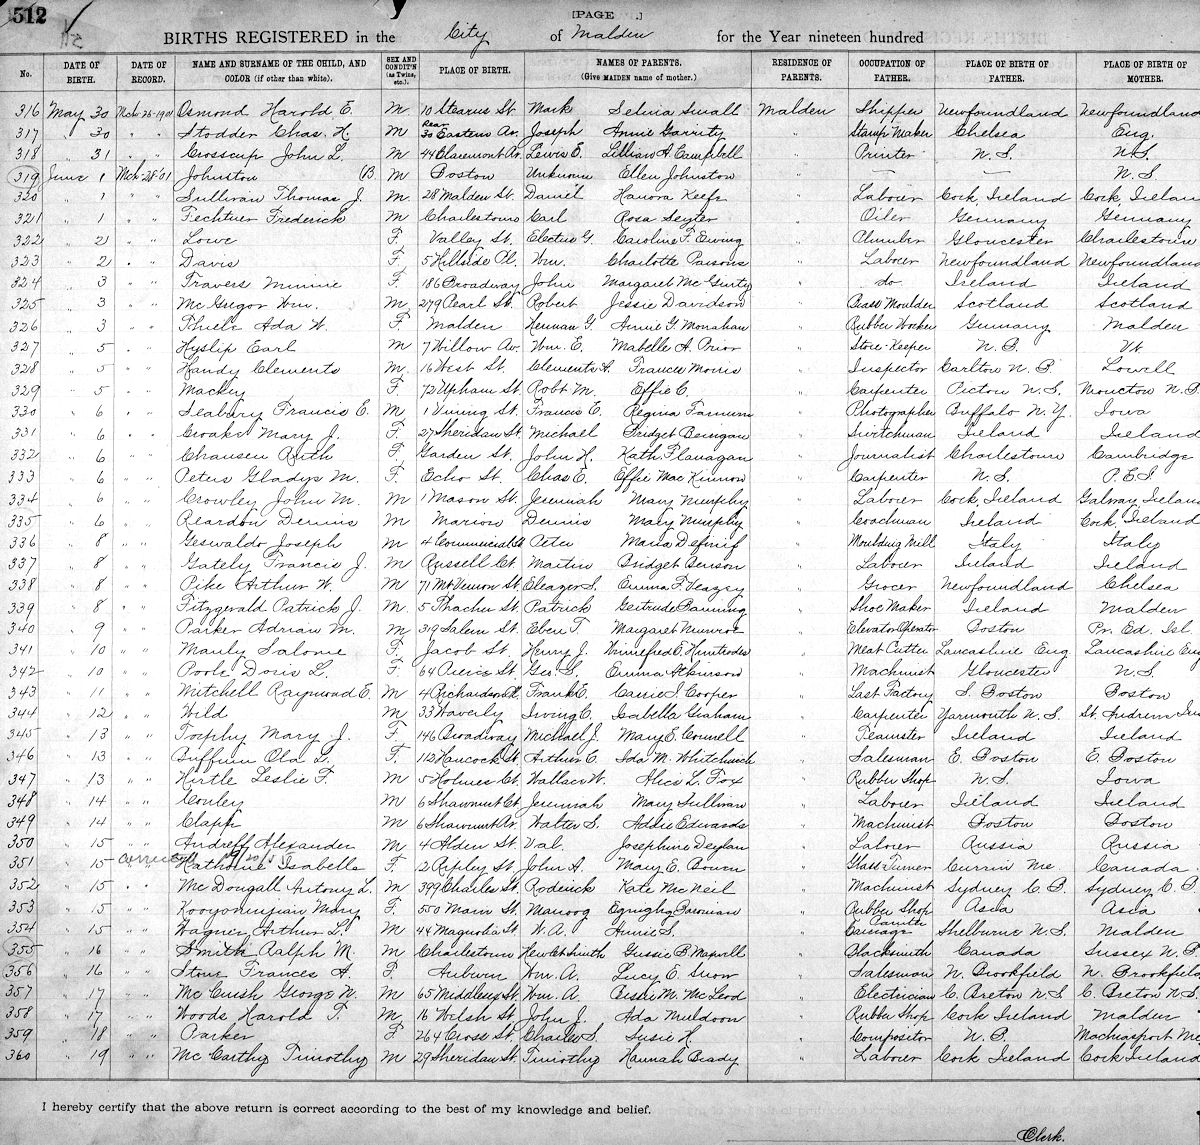 512
[PAGE ]
BIRTHS REGISTERED in the City of Malden for the Year nineteen hundred
No. DATE OF BIRTH. DATE OF RECORD. NAME AND SURNAME OF THE CHILD, AND COLOR (if other than white). SEX AND CONDIT'N (as Twins, etc.). PLACE OF BIRTH. NAMES OF PARENTS. (Give MAIDEN name of mother.) RESIDENCE OF PARENTS. OCCUPATION OF FATHER. PLACE OF BIRTH OF FATHER. PLACE OF BIRTH OF MOTHER.
316 May 30 Mch 28-1901 Osmond Harold E. M 10 Stearns St. Mark Selina Small Malden Shipper Newfoundland Newfoundland
317 " 30 " " Stodder Chas. H. M Rear 30 Eastern Av. Joseph Annie Garrity " Stamp Maker Chelsea Eng.
318 " 31 " " Crosscup John L. M 44 Claremont Av. Lewis E. Lillian A. Campbell " Printer N.S. N.S.
319 June 1 Mch 28-01 Johnston (B M Boston Unknown Ellen Johnston " — — N.S.
320 " 1 " " Sullivan Thomas J. M 28 Malden St. Daniel Hanora Keefe " Laborer Cork Ireland Cork Ireland
321 " 1 " " Fechtner Frederick M Charlestown Carl Rosa Seyter " Oiler Germany Germany
322 " 2 " " Lowe F. Valley St. Electus G. Caroline F. Ewing " Plumber Gloucester Charlestown
323 " 2 " " Davis F. 5 Hillside Pl. Wm. Charlotte Parsons " Laborer Newfoundland Newfoundland
324 " 3 " " Travers Minnie F. 186 Broadway John Margaret McGinty " do Ireland Ireland
325 " 3 " " McGregor Wm. M 279 Pearl St. Robert Jessie Davidson " Brass Moulder Scotland Scotland
326 " 3 " " Thiele Ada W. F. Malden Herman G. Annie G. Monahan " Rubber Worker Germany Malden
327 " 5 " " Hyslip Earl M 7 Willow Av. Wm. E. Mabelle A. Prior " Store-Keeper N.B. Vt.
328 " 5 " " Handy Clements M. 16 West St. Clements A. Frances Morris " Inspector Carlton N.B. Lowell
329 " 5 " " Mackey F. 72 Upham St. Robt M. Effie C. " Carpenter Pictou N.S. Moncton N.B
330 " 6 " " Seabury Francis E. M 1 Vining St. Francis E. Regina Farnum " Photographer Buffalo N.Y. Iowa
331 " 6 " " Croake Mary J. F. 27 Sheridan St. Michael Bridget Bernigan " Switchman Ireland Ireland
332 " 6 " " Chausen Ruth F. Garden St. John H. Kath. Flanagan " Journalist Charlestown Cambridge
333 " 6 " " Peters Gladys M. F. Echo St. Chas E. Effie MacKinnon " Carpenter N.S. P.E.I
334 " 6 " " Crowley John M. M 1 Mason St. Jeremiah Mary Murphy " Laborer Cork Ireland Galway Ireland
335 " 6 " " Reardon Dennis M Marion Dennis Mary Murphy " Coachman Ireland Cork, Ireland
336 " 8 " " Geswaldo Joseph M 4 Commercial St Peter Maria " Moulding Mill Italy Italy
337 " 8 " " Gately Francis J. M Russell Ct Martin Bridget Benson " Laborer Ireland Ireland
338 " 8 " " Pike Arthur W. M 71 Mt Vernon St. Eleazer S. Emma F. Veazey " Grocer Newfoundland Chelsea
339 " 8 " " Fitzgerald Patrick J. M. 5 Thacher St. Patrick Gertrude Banning " Shoe Maker Ireland Malden
340 " 9 " " Parker Adrian M. M 319 Salem St. Eben T. Margaret Munroe " Elevator Operator Boston Pr. Ed. Isl.
341 " 10 " " Manly Salome F. Jacob St. Henry J. Winnefred E. " Meat Cutter Lancashire Eng Lancashire Eng
342 " 10 " " Poole Doris L. F. 64 Pierce St. Geo. S. Emma Atkinson " Machinist Gloucester N.S.
343 " 11 " " Mitchell Raymond E. M 4 Richardson Pl. Frank E. Carrie I. Cooper " Last Factory S. Boston Boston
344 " 12 " " Wild M 33 Waverly Irving C. Isabella Graham " Carpenter Yarmouth N.S. St Andrew
345 " 13 " " Torphy Mary J. F. 146 Broadway Michael J. Mary E. Connell " Teamster Ireland Ireland
346 " 13 " " Buffum Ola L. F. 112 Hancock St Arthur C. Ida M. Whitchurch " Salesman E. Boston E. Boston
347 " 13 " " Hirtle Leslie F. M 5 Holmes Ct. Wallace W. Alice L. Fox " Rubber Shop N.S. Iowa
348 " 14 " " Conley M 6 Shawmut Ct. Jeremiah Mary Sullivan " Laborer Ireland Ireland
349 " 14 " " Clapp M 6 Shawmut Av. Walter S. Addie Edwards " Machinist Boston Boston
350 " 15 " " Andreff Alexander M 4 Alden St. Val. Josephine Deylan " Laborer Russia Russia
351 " 15 corrected Katherine Isabelle F. 2 Ripley St. John A. Mary E. Bowen " Glass Turner Me Canada
352 " 15 " " McDougall Antony L. M 399 Charles St. Roderick Kate McNeil " Machinist Sydney C.B. Sydney C.B.
353 " 15 " " Kooyoumjian Mary F. 550 Main St. Manoog Paronian " Rubber Shop Asia Asia
354 " 15 " " Wagner Arthur L. M 44 Magnolia St. W.A. Annie S. " Carriage Painter Shelburne N.S. Malden
355 " 16 " " Smith Ralph M. M Charlestown Hew Ct Smith Gussie B. Maxwell " Blacksmith Canada Sussex N.B
356 " 16 " " Stone Frances A. F. Auburn Wm. A. Lucy E. Snow " Salesman N. Brookfield N. Brookfield
357 " 17 " " McCuish George N. M 65 Middlesex St. Wm. A. Bessie M. McLeod " Electrician C. Breton N.S C. Breton N.S
358 " 17 " " Woods Harold F. M 16 Welsh St. John J. Ada Muldoon " Rubber Shop Cork Ireland Malden
359 " 18 " " Parker F 264 Cross St. Charles S. Susie H. " Compositor N.B. Machiasport Me
360 " 19 " " McCarthy Timothy M 29 Sheridan St. Timothy Hannah Brady " Laborer Cork Ireland Cork Ireland
I hereby certify that the above return is correct according to the best of my knowledge and belief.
Clerk.